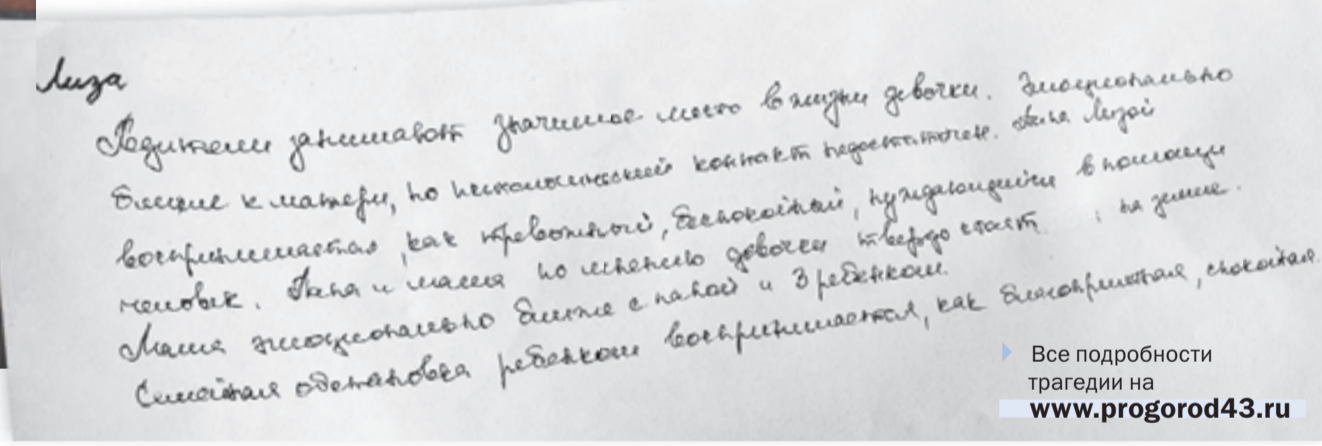 Лиза
Родители занимают значимое место в жизни девочки. Эмоционально
ближе к матери, но психологический контакт недостаточен. Папа Лизой
воспринимается, как тревожный, беспокойный, нуждающийся в помощи
человек. Папа и мама по мнению девочки твердо стоят на земле.
Мама эмоционально ближе с папой и 3 ребенком.
Семейная обстановка ребенком воспринимается, как благоприятная, спокойная.
Все подробности
трагедии на
www.progorod43.ru